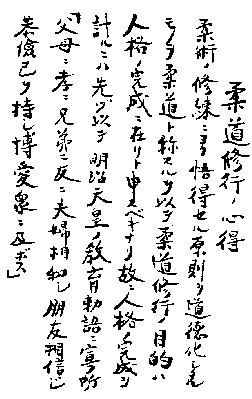 柔道修行ノ心得
柔術ノ修練ニヨリ悟得セル原則ヲ道徳化シタル
モノヲ柔道ト称スルヲ以テ柔道修行ノ目的ハ
人格ノ完成ニ在リト申スベキナリ故ニ人格ノ完成ヲ
計ルニハ先ヅ以テ明治天皇ノ教育勅語ニ宣フ所
「父母ニ孝ニ兄弟ニ友ニ夫婦相和シ朋友相信ジ
恭倹己ヲ持シ博愛衆ニ及ボス」